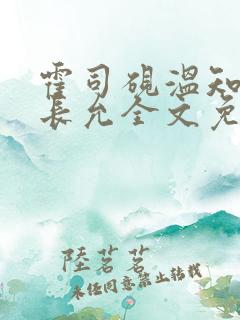 霍司砚温知
長允全文免
陸茗茗
未经同意禁止转载